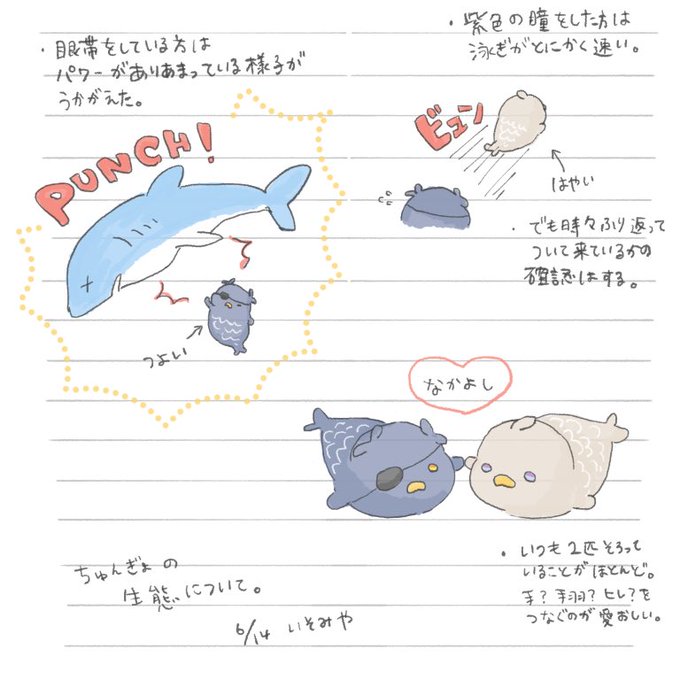 ・眼帯をしている方は
パワーがありあまっている様子が
うかがえた。
PUNCH!
つよい
・紫色の瞳をした方は
泳ぎがとにかく速い。
ビューン
はやい
・でも時々ふり返って
ついて来ているかの
確認はする。
なかよし
・いつも2匹そろって
いることがほとんど。
手?手羽?ヒレ?を
つなぐのが愛おしい。
ちゅんぎょの
生態について。
6/14 いそみや